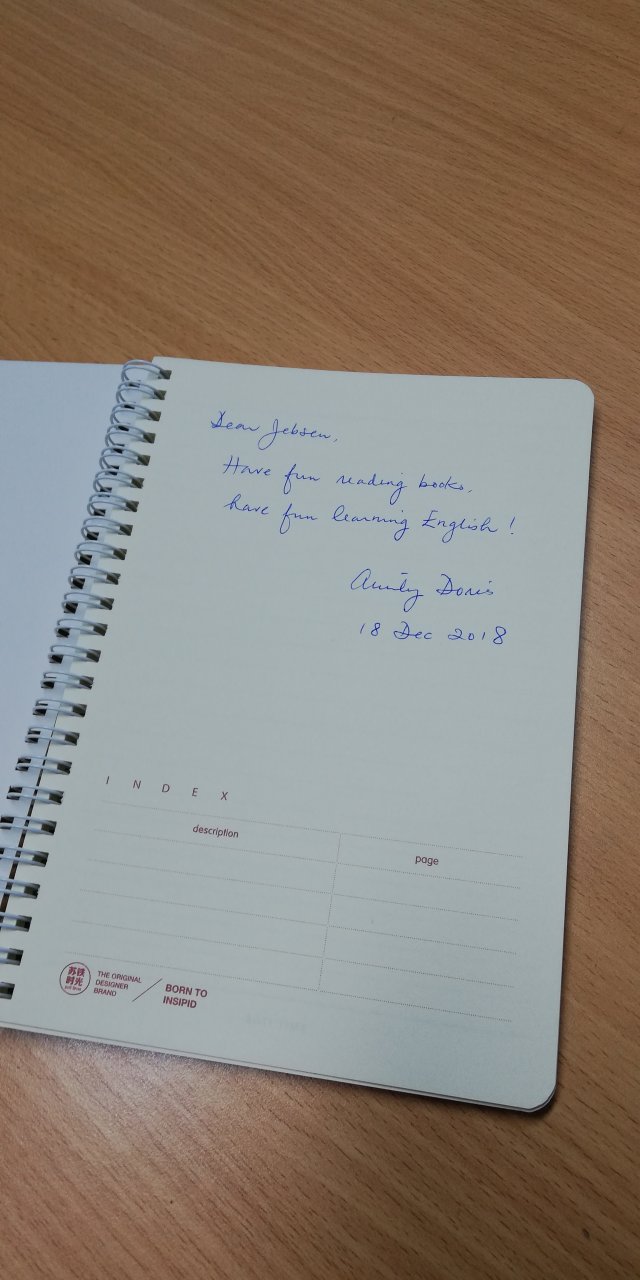 Dear Jebsen,
Have fun reading books,
have fun learning English!
Aunty Doris
18 Dec 2018
INDEX
description page
苏铁
时光
THE ORIGINAL
DESIGNER
BRAND
BORN TO
INSIPID